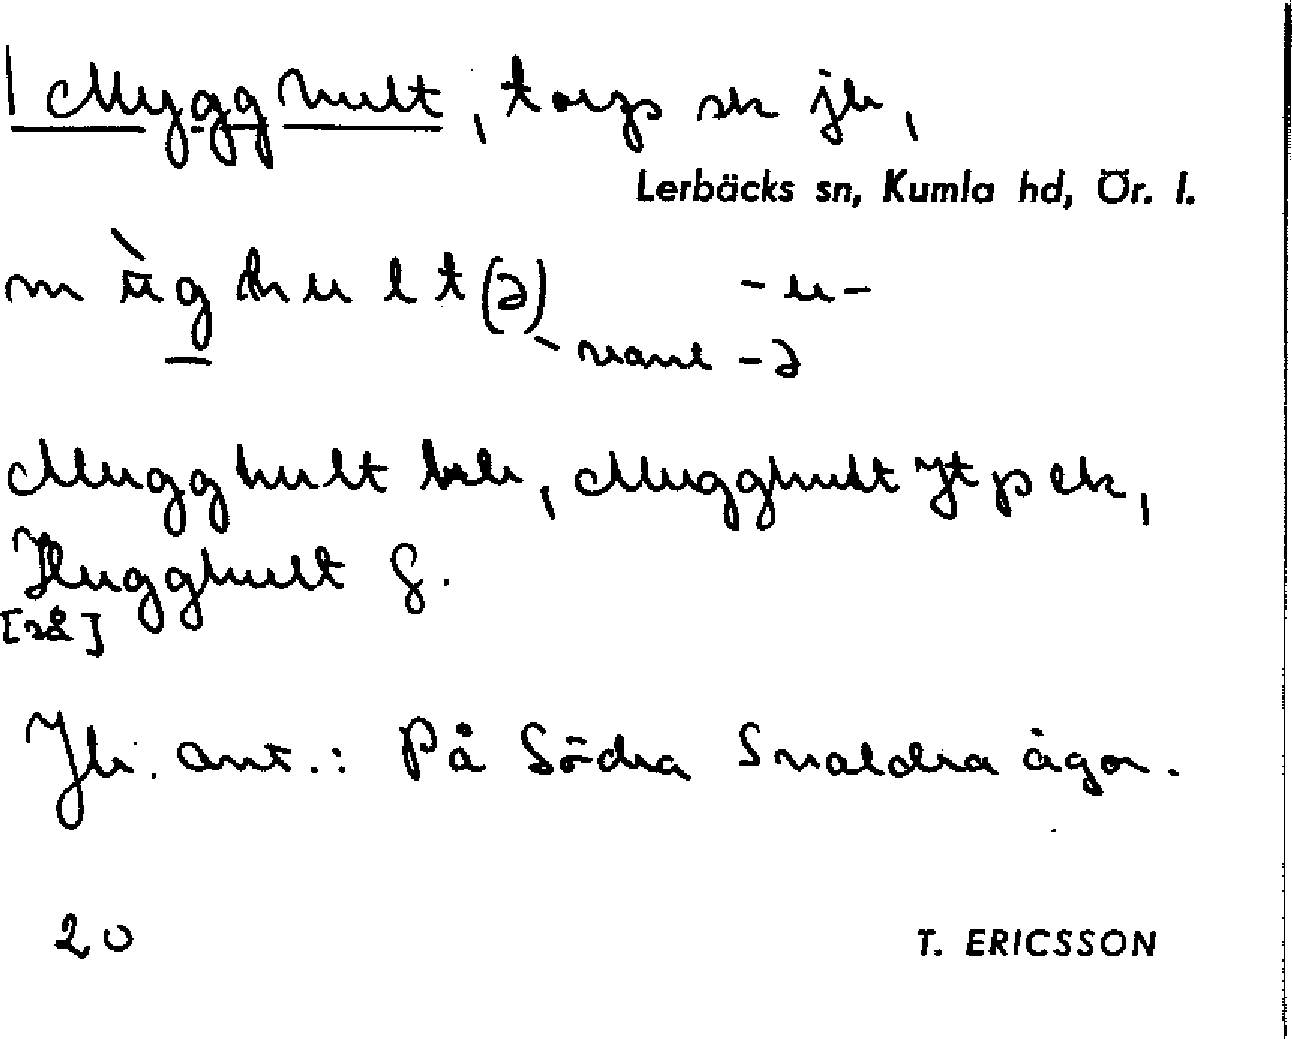 1 Mygghult, torp sk jb,
Lerbäcks sn, Kumla hd, Ör. l.
m ù g h u l t (ə) - u -
- vanl - ə
Mugghult hbl, Mugghult Jt p ek,
Hugghult G.
[så]
Jb. ant.: På Södra Snaldra ägor.
20
T. ERICSSON